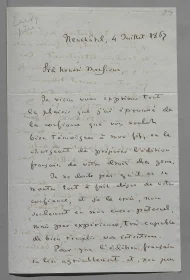 Neuchâtel, 4 Juillet 1867
Très honoré Monsieur,
Je viens vous exprimer tout
le plaisir que j'ai éprouvé de
la confiance que vous voulez
bien témoigner à mon fils, en le
chargeant de préparer l'édition
française de votre
Je ne doute pas qu'il ne se
montre tout à fait digne de cette
confiance, et je le crois, non
seulement
mais par expérience, très capable
de bien remplir vos intentions.
Pour que l'édition française
se lise agréablement et